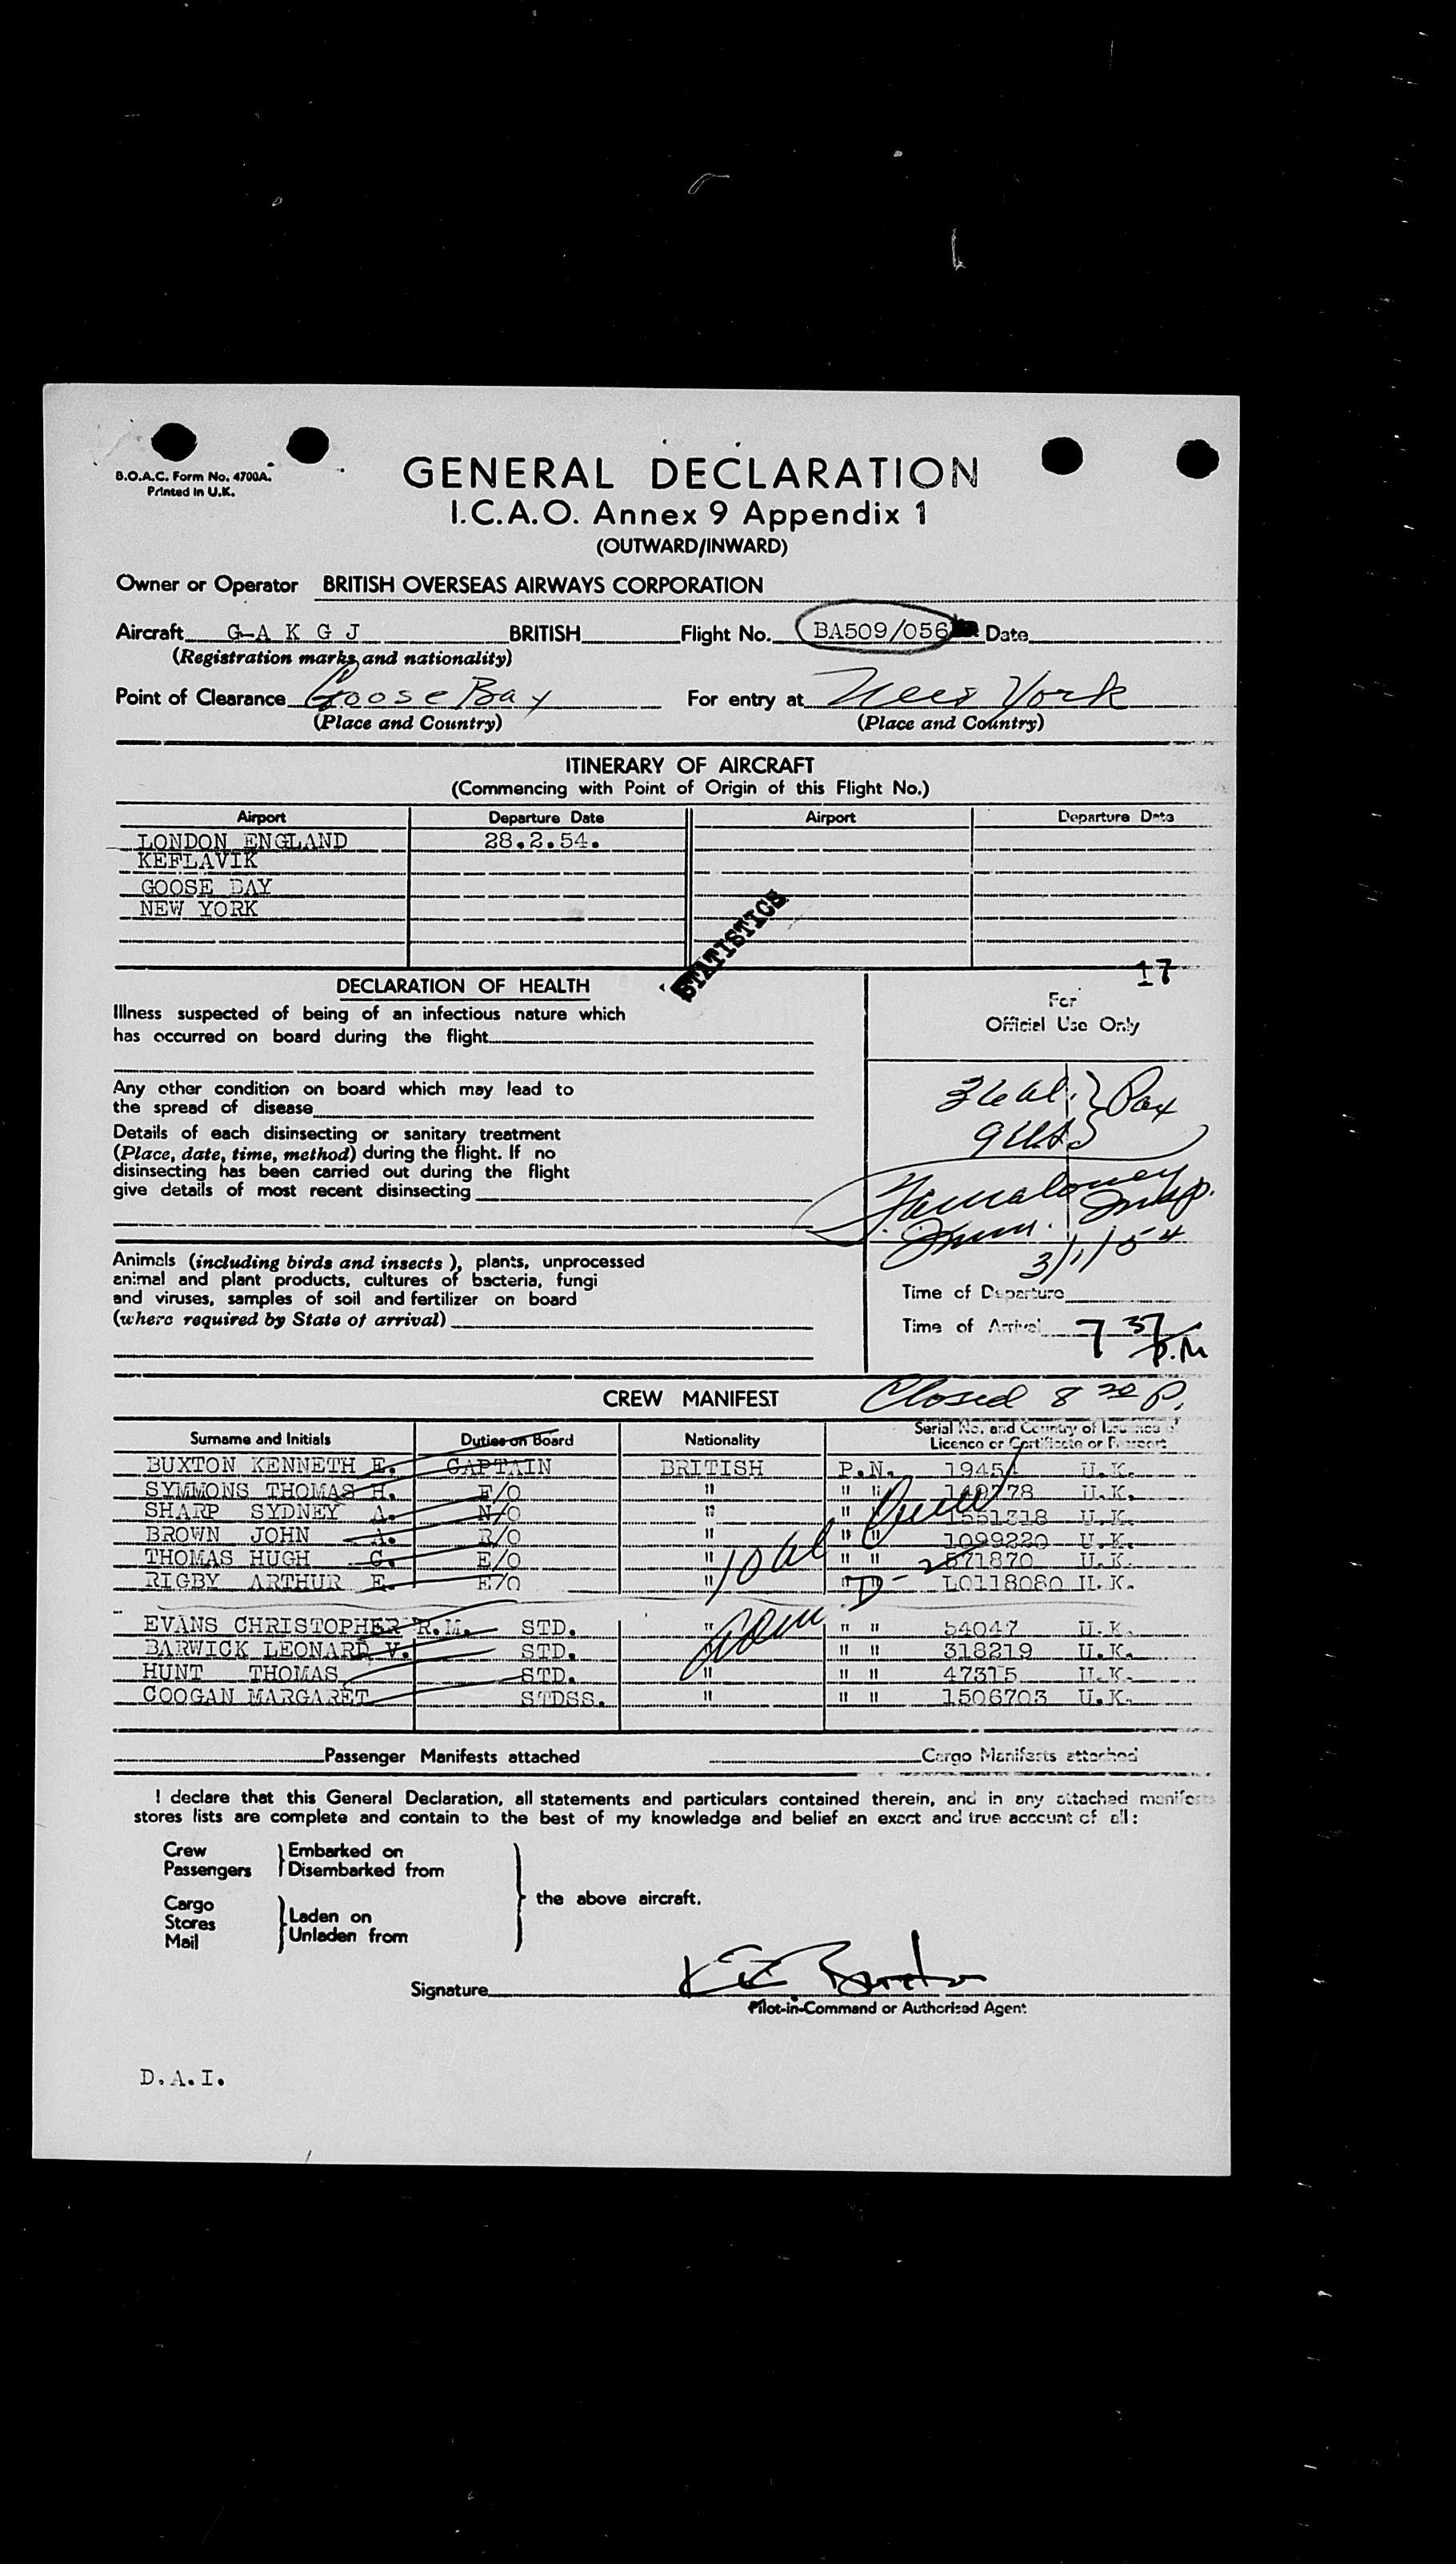 B.O.A.C. Form No. 4700A.
Printed in U.K.
GENERAL DECLARATION
I.C.A.O. Annex 9 Appendix 1
(OUTWARD/INWARD)
Owner or Operator BRITISH OVERSEAS AIRWAYS CORPORATION
Aircraft G-A K G J BRITISH Flight No. BA509/056 Date
(Registration marks and nationality)
Point of Clearance Goose Bay For entry at New York
(Place and Country) (Place and Country)
ITINERARY OF AIRCRAFT
(Commencing with Point of Origin of this Flight No.)
Airport Departure Date Airport Departure Date
LONDON ENGLAND 28.2.54.
KEFLAVIK
GOOSE BAY
NEW YORK
STATISTICS
17
DECLARATION OF HEALTH
Illness suspected of being of an infectious nature which
has occurred on board during the flight
Any other condition on board which may lead to
the spread of disease
Details of each disinsecting or sanitary treatment
(Place, date, time, method) during the flight. If no
disinsecting has been carried out during the flight
give details of most recent disinsecting
Animals (including birds and insects), plants, unprocessed
animal and plant products, cultures of bacteria, fungi
and viruses, samples of soil and fertilizer on board
(where required by State of arrival)
For
Official Use Only
36 al. Pax
9 USS
Imm. Insp.
3/1/54
Time of Departure
Time of Arrival 7 37 P.M
CREW MANIFEST Closed 8 20 P.
Surname and Initials Duties on Board Nationality Serial No. and Country of Issuance of
Licence or Certificate or Passport
BUXTON KENNETH E. CAPTAIN BRITISH P.N. 19454 U.K.
SYMMONS THOMAS H. F/O " " " 149778 U.K.
SHARP SYDNEY A. N/O " " 1551318 U.K.
BROWN JOHN A. R/O " " " 1099220 U.K.
THOMAS HUGH G. E/O " " " 571870 U.K.
RIGBY ARTHUR E. E/O " " " L0118080 U.K.
10 al Crew
Adm. D-2
EVANS CHRISTOPHER R.M. STD. " " " 54047 U.K.
BARWICK LEONARD V. STD. " " " 318219 U.K.
HUNT THOMAS STD. " " " 47315 U.K.
COOGAN MARGARET STDSS. " " " 1506703 U.K.
Passenger Manifests attached Cargo Manifests attached
I declare that this General Declaration, all statements and particulars contained therein, and in any attached manifests
stores lists are complete and contain to the best of my knowledge and belief an exact and true account of all:
Crew
Passengers
Embarked on
Disembarked from
Cargo
Stores
Mail
Laden on
Unladen from
the above aircraft.
Signature K E Buxton
Pilot-in-Command or Authorised Agent
D.A.I.